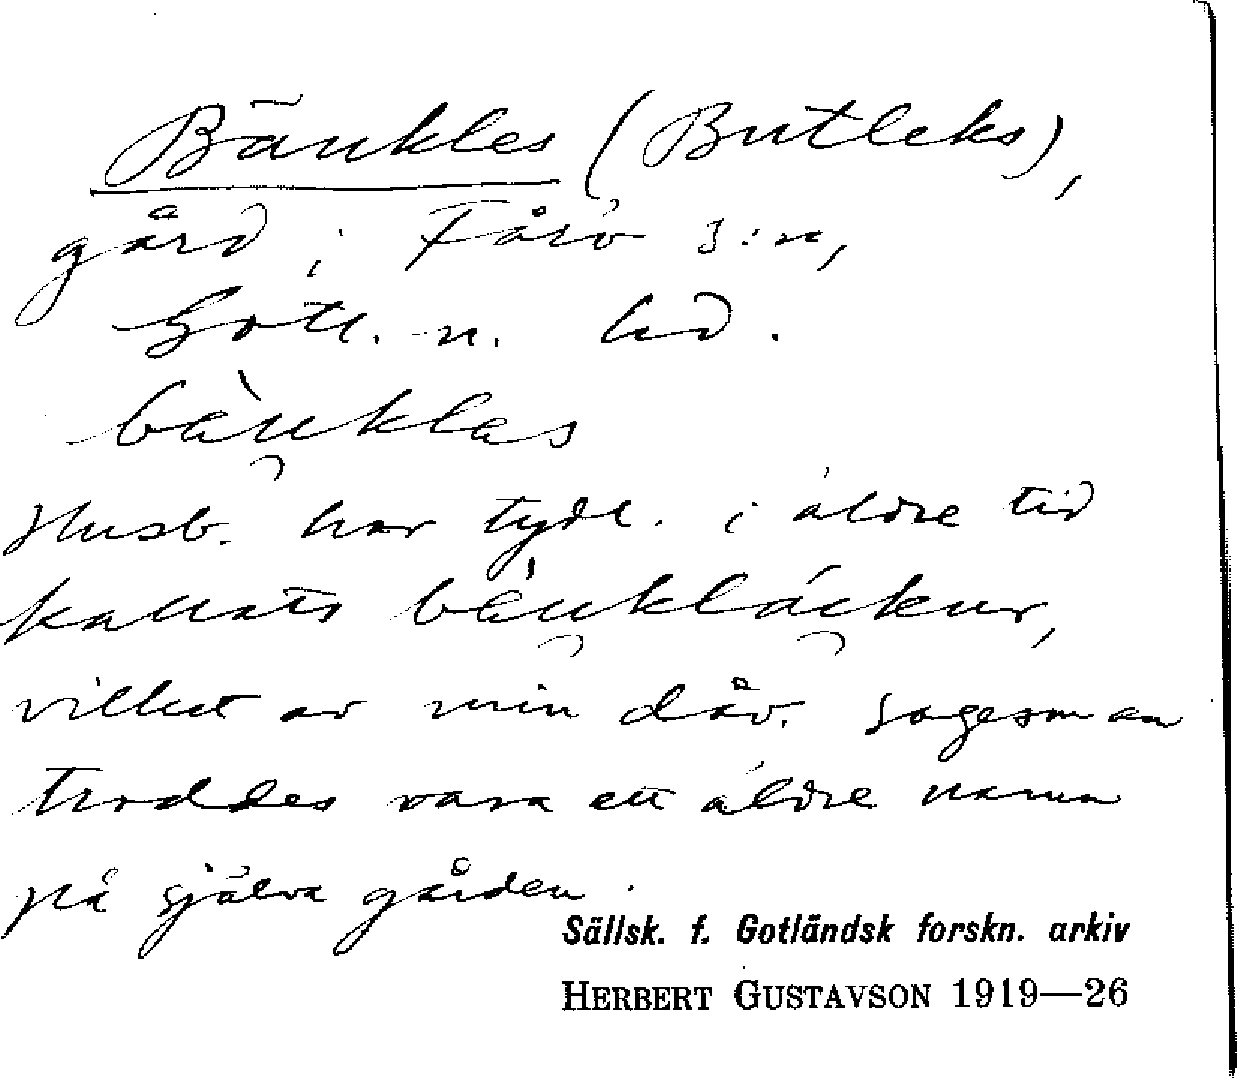 Bäukles (Butleks),
gård i Fårö s:n,
Gotl. n. hd.
bäuklas
Husb. har tydl. i äldre tid
kallats bäukläckur,
vilket av min dåv. sagesman
troddes vara ett äldre namn
på själva gården.
Sällsk. f. Gotländsk forskn. arkiv
HERBERT GUSTAVSON 1919—26